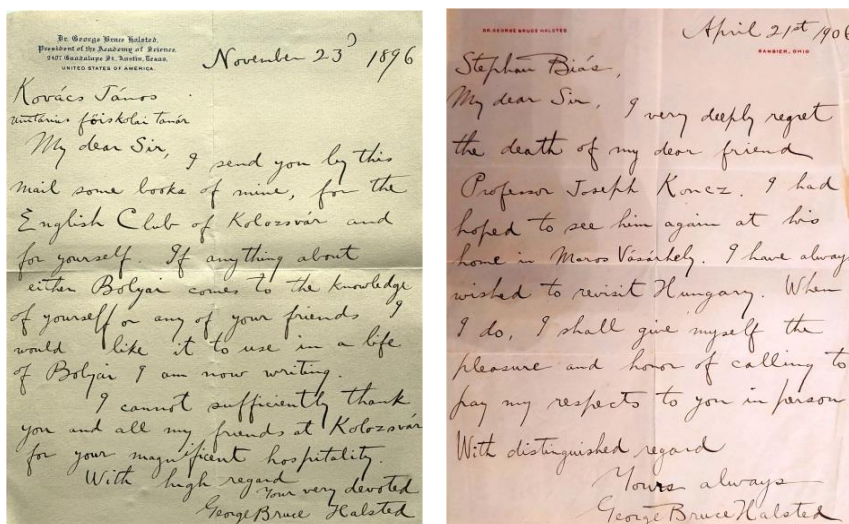 Dr. George Bruce Halsted,
President of the Academy of Science.
2407 Guadalupe St. Austin, Texas.
UNITED STATES OF AMERICA.
November 23d 1896
Kovács János
unitárius főiskolai tanár
My dear Sir,
I send you by this
mail some books of mine, for the
English Club of Kolozsvár and
for yourself. If anything about
either Bolyai comes to the knowledge
of yourself or any of your friends I
would like it to use in a life
of Bolyai I am now writing.
I cannot sufficiently thank
you and all my friends at Kolozsvár
for your magnificent hospitality.
With high regard
Your very devoted
George Bruce Halsted
DR. GEORGE BRUCE HALSTED
April 21st 1906
GAMBIER, OHIO
Stephan Biás,
My dear Sir,
I very deeply regret
the death of my dear friend
Professor Joseph Koncz. I had
hoped to see him again at his
home in Maros Vásárhely. I have always
wished to revisit Hungary. When
I do, I shall give myself the
pleasure and honor of calling to
pay my respects to you in person
With distinguished regard
Yours always
George Bruce Halsted